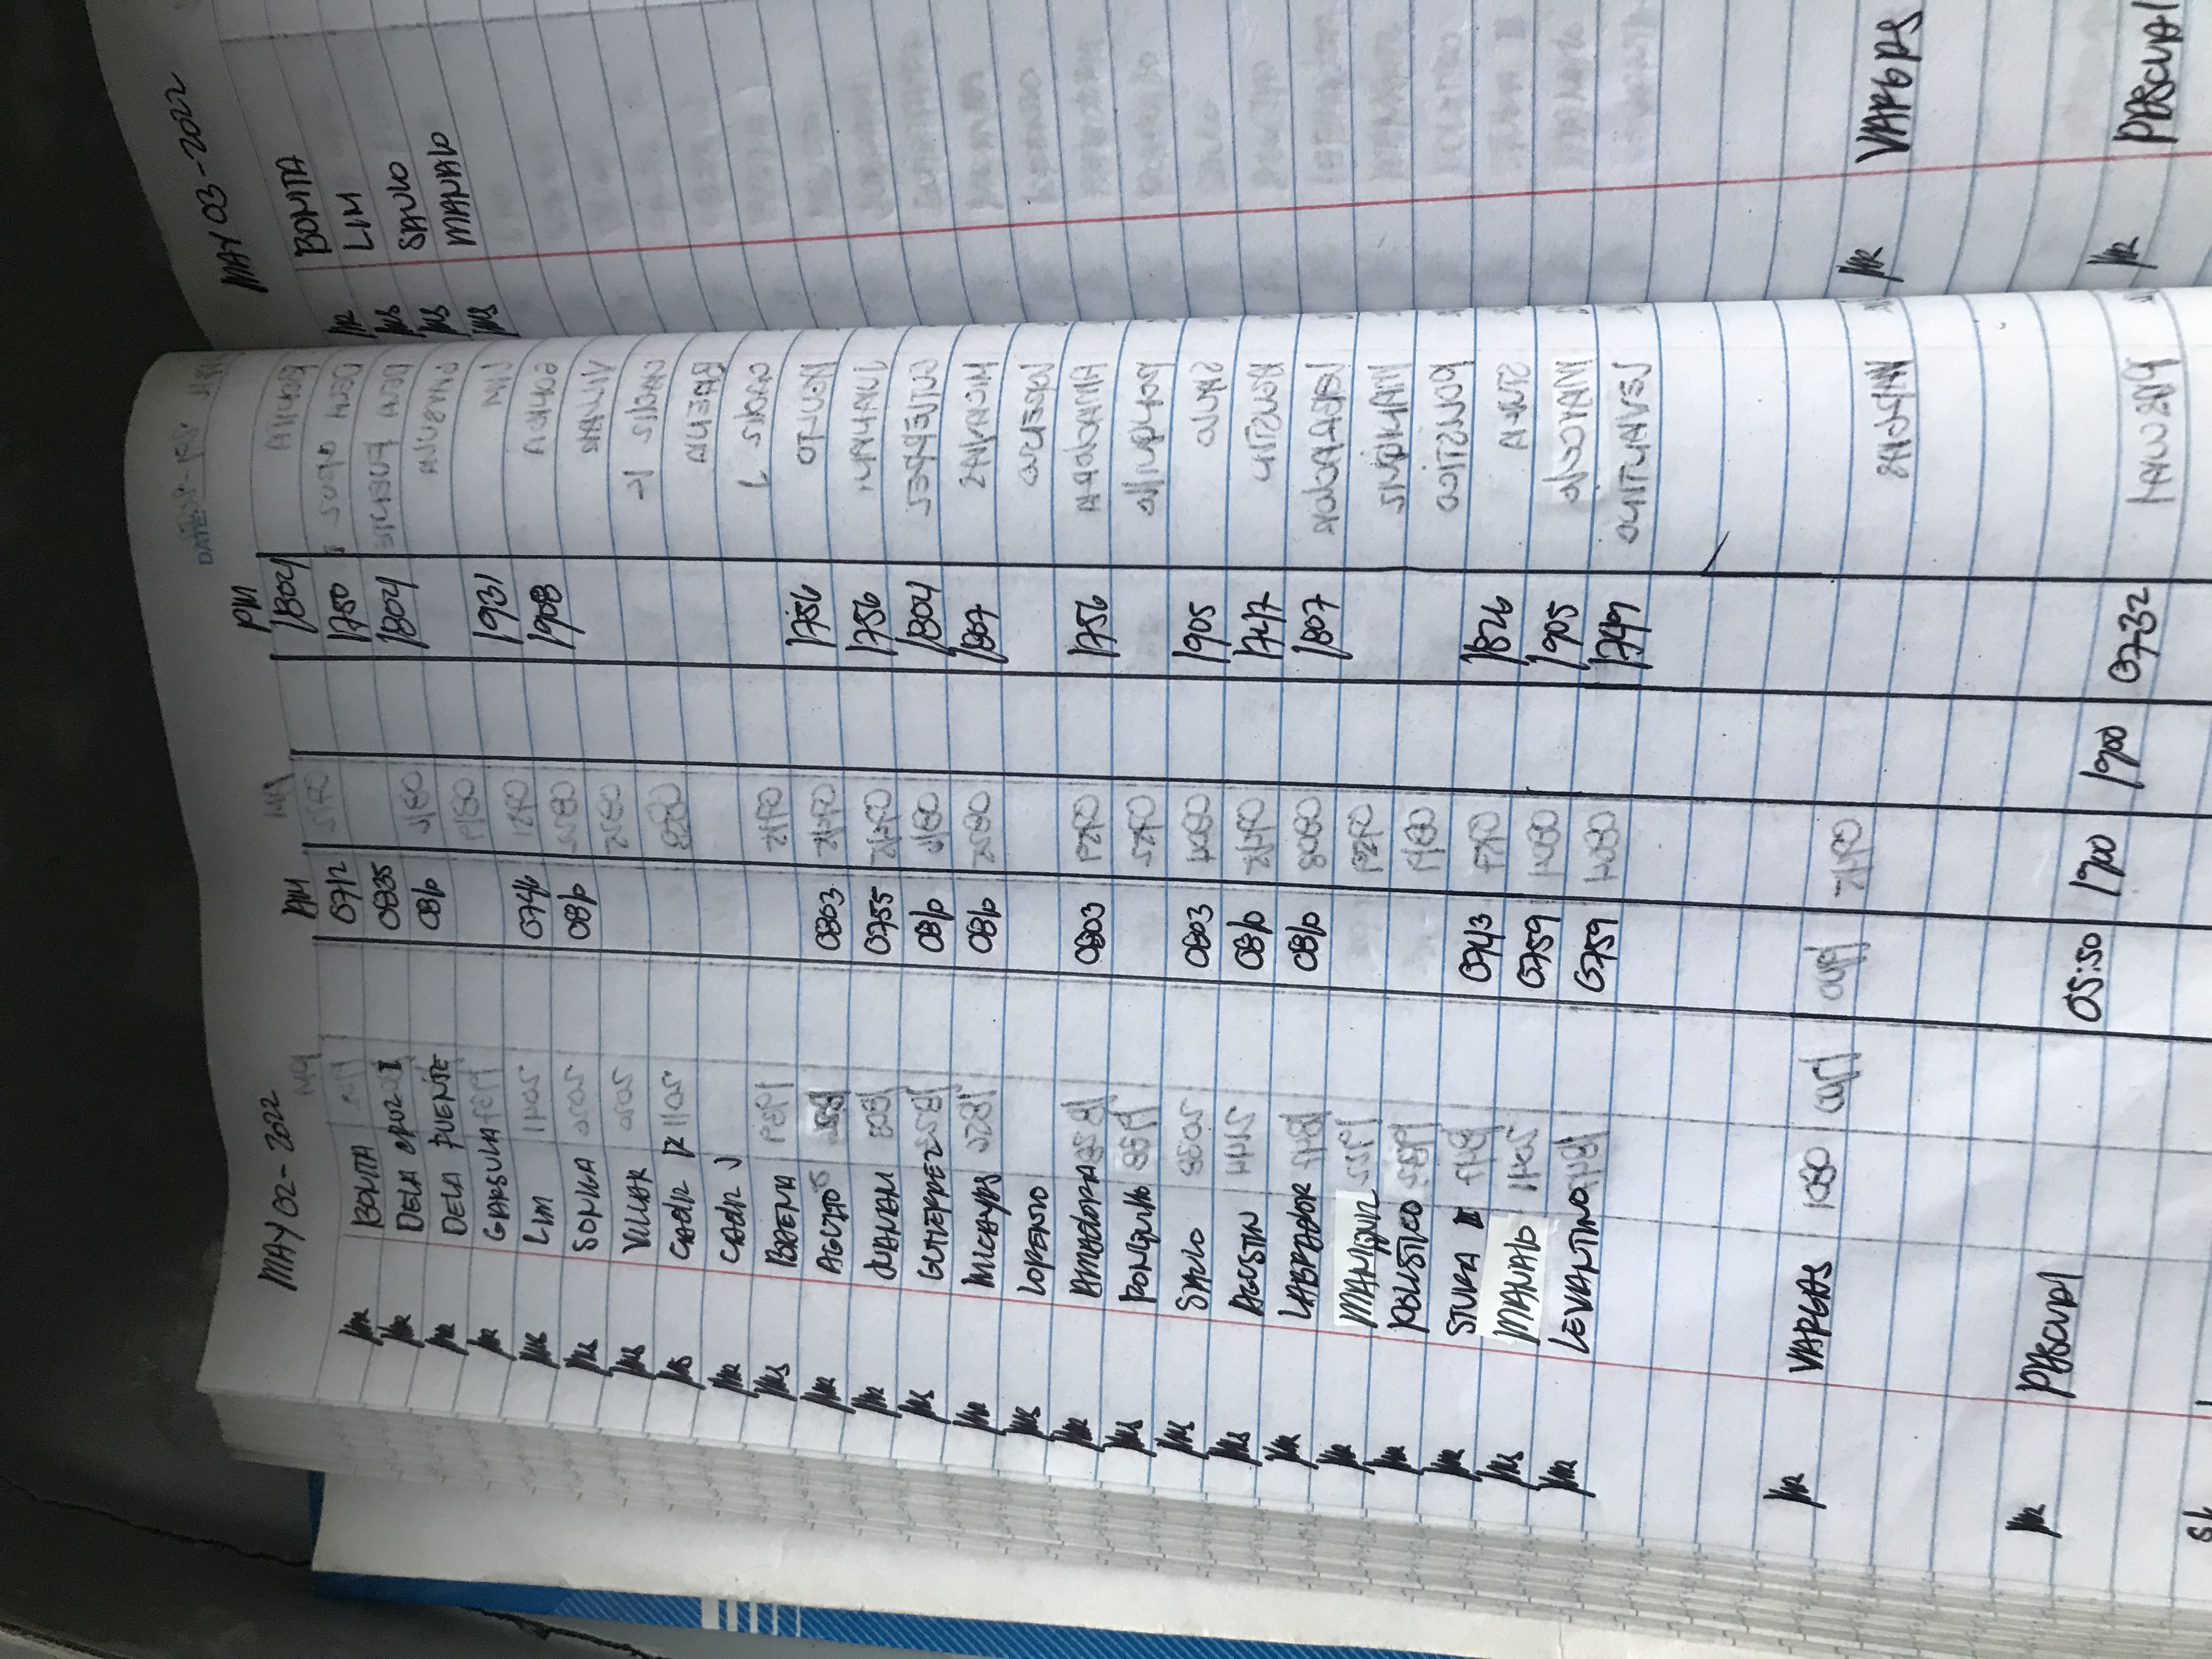 MAY 02-2022
AM PM
MR BONITA 0712 1804
MR DELA CRUZ I 0835 1750
MR DELA FUENTE 0810 1804
MR GARSULA
MS LIM 0746 1931
MS SONGA 0810 1908
MS VILLAR
MS CADIZ K
MR CADIZ J
MS BAENA
MR AGULTO 0803 1756
MR JUANANI 0755 1756
MS GUTIERREZ 0810 1804
MR MICAYAS 0810 1807
MS LORENZO
MR AMADORA 0803 1756
MS RONQUILLO
MS SAULO 0803 1905
MS AGUSTIN 0810 1747
MR LABRADOR 0810 1807
MR MANIQUIZ
MR POLISTICO
MR STURA II 0743 1826
MS MANALO 0759 1905
MR LEVIANTINO 0759 1749
MR VARGAS
MR PASCUAL 05:50 1900 1900 0732
SL
DATE:
MAY 03-2022
MR BONITA
MS LIM
MS SAULO
MS MANALO
MR VARGAS
MR PASCUAL